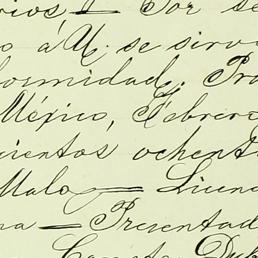 rios — Por se
o á U. se sirv
formidad. Pro
México, Febrero
cientos ochent
Malo — Licen
na — Presentad